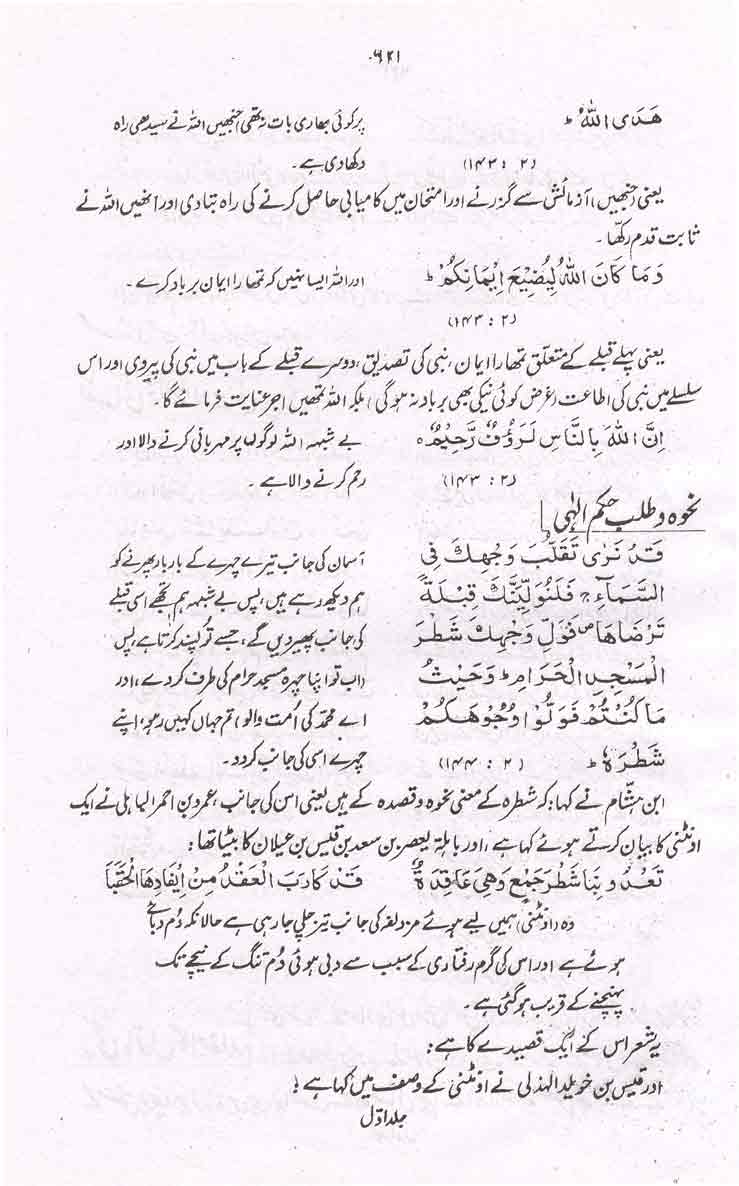 ۶۲۱
ھَدَی اللّٰہُ ؕ پر کوئی بھاری بات نہ تھی (جنھیں اللہ نے سیدھی راہ
(۲ : ۱۴۳) دکھا دی ہے۔
یعنی (جنھیں) آزمائش سے گزرنے اور امتحان میں کامیابی حاصل کرنے کی راہ بتا دی اور انھیں اللہ نے
ثابت قدم رکھا۔
وَمَا کَانَ اللّٰہُ لِیُضِیْعَ اِیْمَانَکُمْ ؕ اور اللہ ایسا نہیں کہ تمھارا ایمان برباد کرے۔
(۲ : ۱۴۳)
یعنی پہلے قبلے کے متعلق تمھارا ایمان، نبی کی تصدیق، دوسرے قبلے کے باب میں نبی کی پیروی اور اس
سلسلے میں نبی کی اطاعت (غرض کوئی نیکی بھی برباد نہ ہوگی) بلکہ اللہ تمھیں اجر عنایت فرمائے گا۔
اِنَّ اللّٰہَ بِالنَّاسِ لَرَؤُفٌ رَّحِیْمٌ ہ بے شبہہ اللہ لوگوں پر مہربانی کرنے والا اور
(۲ : ۱۴۳) رحم کرنے والا ہے۔
نحوہ و طلب حکم الٰہی
قَدْ نَرٰی تَقَلُّبَ وَجْھِكَ فِی آسمان کی جانب تیرے چہرے کے بار بار پھرنے کو
السَّمَآءِ ۚ فَلَنُوَلِّیَنَّكَ قِبْلَۃً ہم دیکھ رہے ہیں، پس بے شبہہ ہم تجھے اسی قبلے
تَرْضَاھَا ۠ فَوَلِّ وَجْھِكَ شَطْرَ کی جانب پھیر دیں گے، جسے تو پسند کرتا ہے، پس
الْمَسْجِدِ الْحَرَامِ ؕ وَحَیْثُ (اب تو) اپنا چہرہ مسجد حرام کی طرف کر دے، اور
مَا کُنْتُمْ فَوَلُّوْا وُجُوْھَکُمْ اے محمدؐ کی اُمت والو) تم جہاں کہیں رہو، اپنے
شَطْرَہٗ ؕ (۲ : ۱۴۴) چہرے اسی کی جانب کر دو۔
ابن ہشام نے کہا: کہ شطرہ کے معنی نحوہ و قصدہ کے ہیں یعنی اس کی جانب، عمرو بن احمر الباہلی نے ایک
اونٹنی کا بیان کرتے ہوئے کہا ہے، اور باہلہ یعصر بن سعد بن قیس بن عیلان کا بیٹا تھا:
تَعْدُوْ بِنَا شَطْرَ جَمْعٍ وَھِیَ عَاقِدَۃٌ قَدْ کَارَبَ الْعَقْدُ مِنْ اِیْفَادِھَا الْحَقَبَا
وہ (اونٹنی) ہمیں لیے ہوئے مزدلفہ کی جانب تیز چلی جا رہی ہے حالانکہ دُم دبائے
ہوئے ہے اور اس کی گرم رفتاری کے سبب سے دبی ہوئی دُم تنگ کے نیچے تک
پہنچنے کے قریب ہوگئی ہے۔
یہ شعر اس کے ایک قصیدے کا ہے:
اور قیس بن خویلد الہذلی نے اونٹنی کے وصف میں کہا ہے:
جلد اوّل